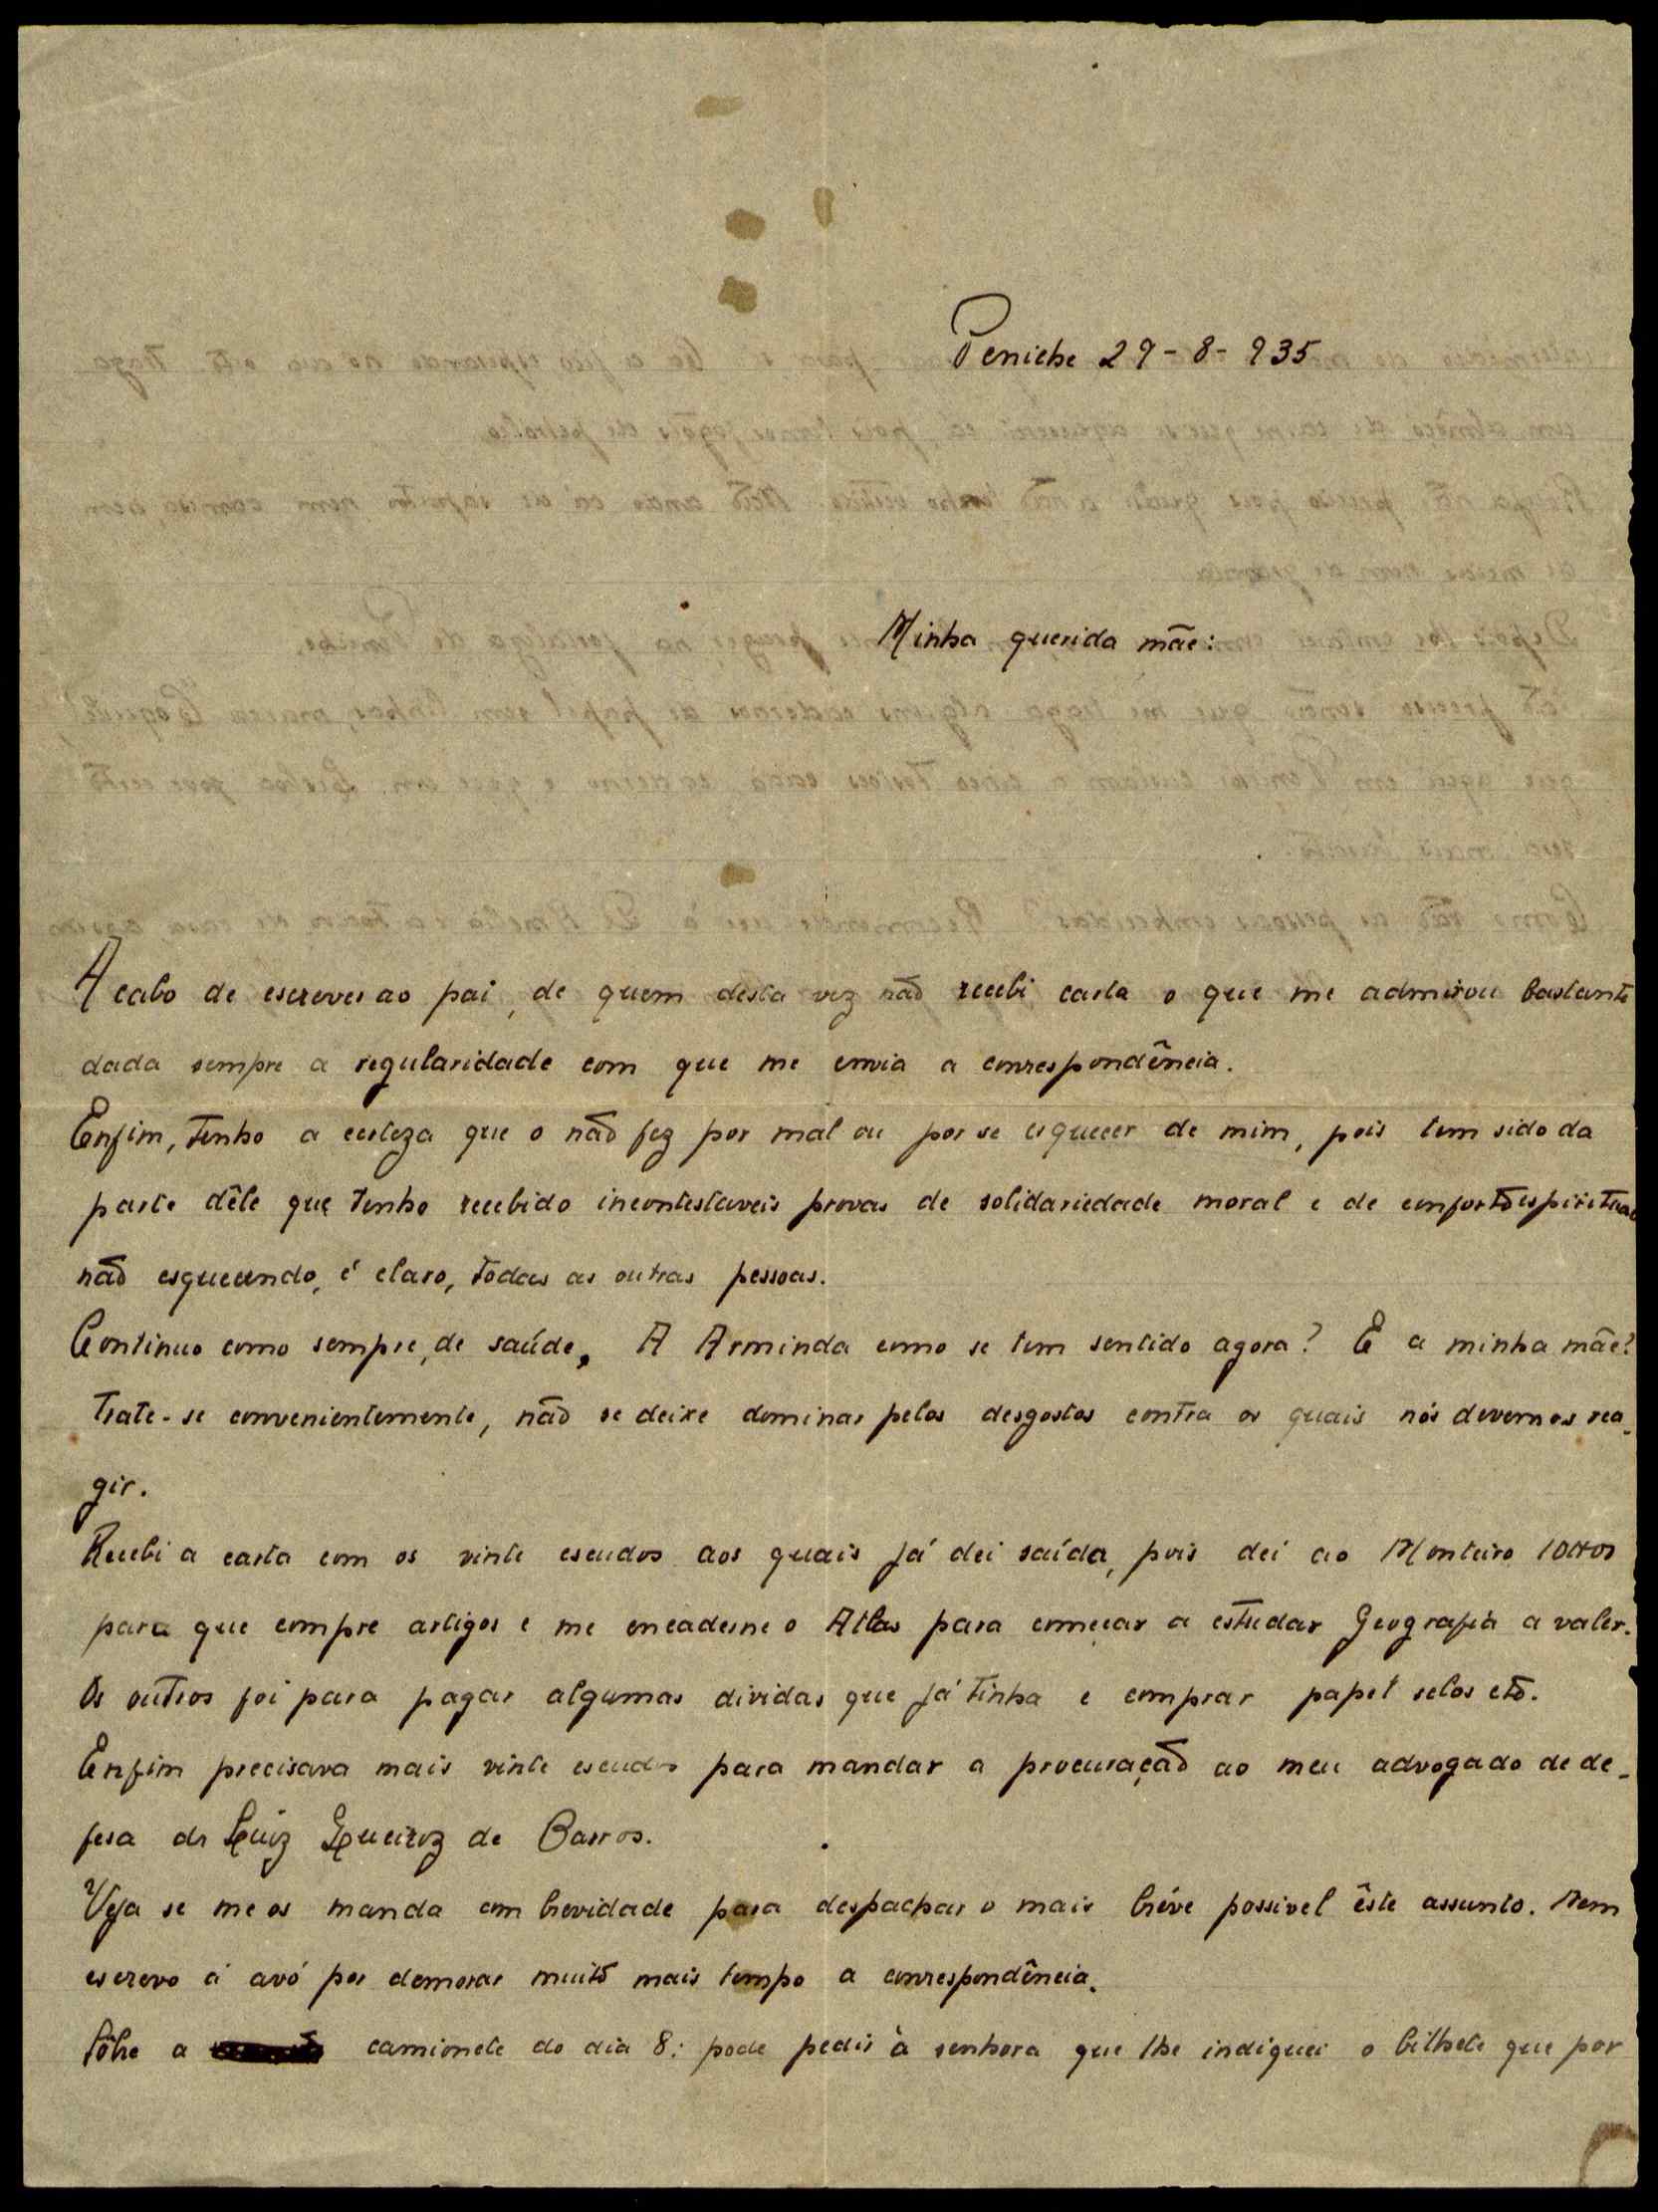 Peniche 29-8-935
Minha querida mãe:
Acabo de escrever ao pai, de quem desta vez não recebi carta o que me admirou bastante
dada sempre a regularidade com que me envia a correspondência.
Enfim, tenho a certeza que o não fez por mal ou por se esquecer de mim, pois tem sido da
parte dêle que tenho recebido incontestaveis provas de solidariedade moral e de confortoespiritual
não esquecendo, é claro, todas as outras pessoas.
Continuo como sempre, de saúde. A Arminda como se tem sentido agora? E a minha mãe?
Trate-se convenientemente, não se deixe dominar pelos desgostos contra os quais nós devemos rea-
gir.
Recebi a carta com os vinte escudos aos quais já dei saída, pois dei ao Monteiro
para que compre artigos e me encaderne o Atlas para começar a estudar Geografia a valer.
Os outros foi para pagar algumas dividas que já tinha e comprar papel selos etc.
Enfim precisava mais vinte escudos para mandar a procuração ao meu advogado de de-
fesa dr Luiz Queiroz de Barros.
Veja se me os manda com brevidade para despachar o mais bréve possivel êste assunto. Nem
escrevo á avó por demorar muito mais tempo a correspondência.
Sôbre a camionete do dia 8: pode pedir à senhora que lhe indiquei o bilhete que por